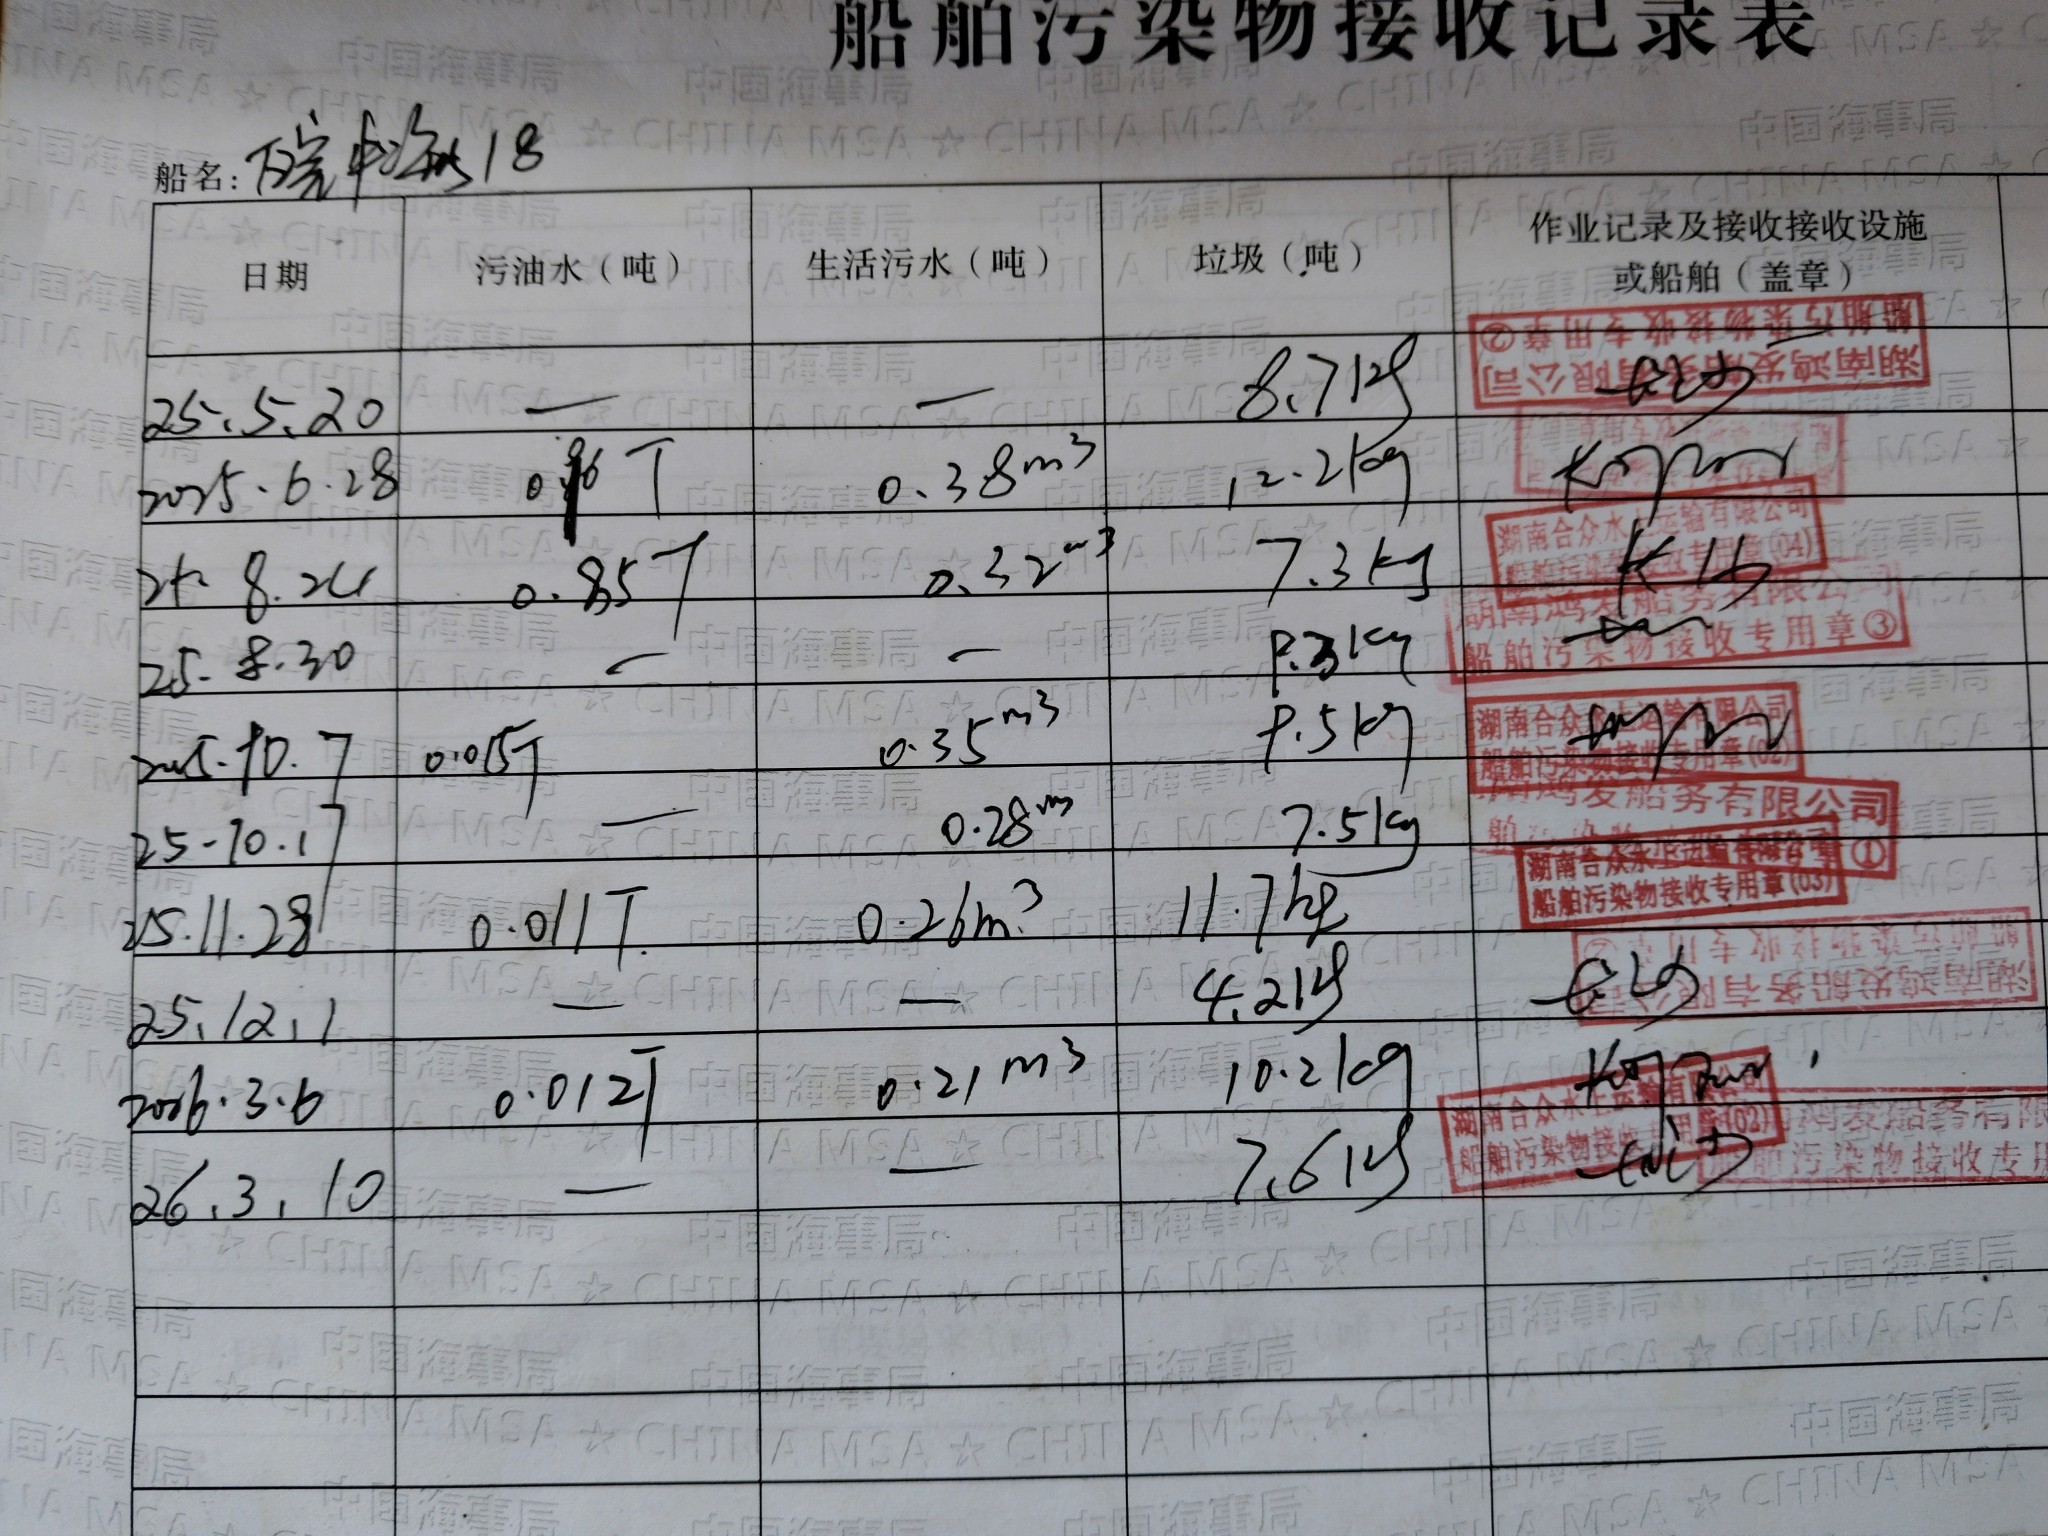 船舶污染物接收记录表
船名: 皖中海 18
日期 污油水（吨） 生活污水（吨） 垃圾（吨） 作业记录及接收接收设施
或船舶（盖章）
25.5.20 — — 8.7kg
船舶污染物接收专用章②
湖南鸿发船务有限公司
2025.6.28 T 0.38m³ 12.2kg
8.24 0.85T 0.32m³ 7.3kg
湖南合众水上运输有限公司
船舶污染物接收专用章(04)
25.8.30 — — 9.3kg
湖南鸿发船务有限公司
船舶污染物接收专用章③
2025.10.7 0.015T 0.35m³ 9.5kg
湖南合众水上运输有限公司
船舶污染物接收专用章(02)
25.10.17 — 0.28m 7.5kg
鸿发船务有限公司
①
25.11.28 0.011T. 0.26m³ 11.7kg
湖南合众水上运输有限公司
船舶污染物接收专用章(03)
25.12.1 — — 4.2kg
船舶污染物接收专用章②
湖南鸿发船务有限公司
2026.3.6 0.012T 0.21m³ 10.2kg
湖南合众水上运输有限
船舶污染物接收专用章(02)
26.3.10 — — 7.6kg
鸿发船务有限
船舶污染物接收专用
中国海事局
CHINA MSA ☆